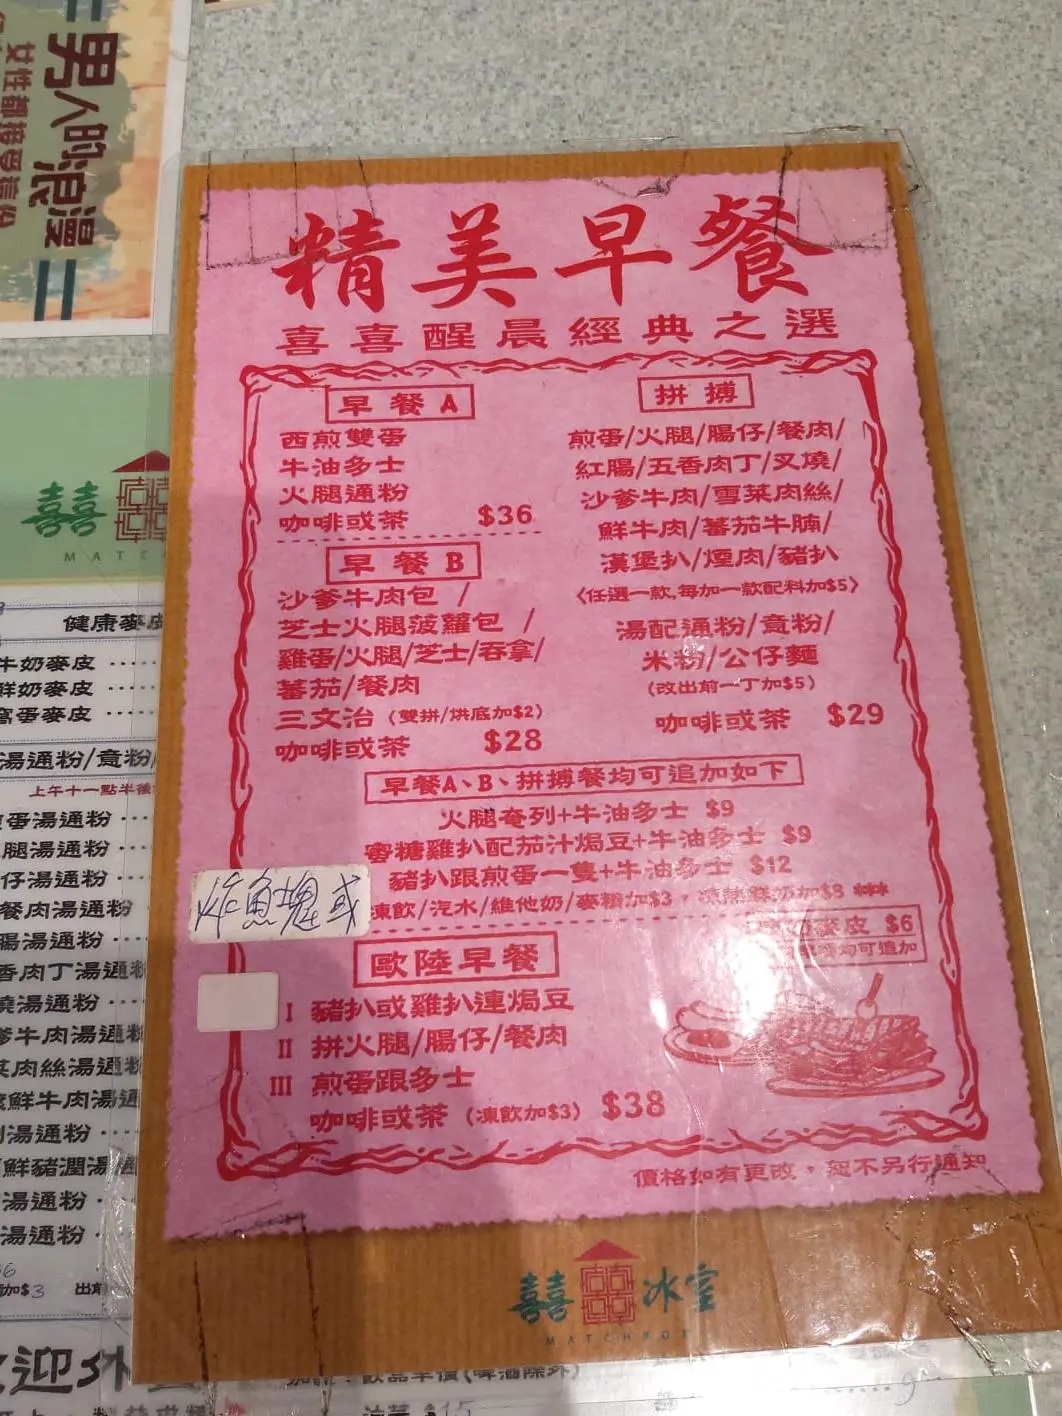 男人的浪漫
精美早餐
喜喜醒晨經典之選
早餐A
西煎雙蛋
牛油多士
火腿通粉
咖啡或茶 $36
早餐B
沙爹牛肉包 /
芝士火腿菠蘿包 /
雞蛋/火腿/芝士/吞拿/
蕃茄/餐肉
三文治 (雙拼/烘底加$2)
咖啡或茶 $28
拼搏
煎蛋/火腿/腸仔/餐肉/
紅腸/五香肉丁/叉燒/
沙爹牛肉/雪菜肉絲/
鮮牛肉/蕃茄牛腩/
漢堡扒/煙肉/豬扒
〈任選一款,每加一款配料加$5〉
湯配通粉/意粉/
米粉/公仔麵
(改出前一丁加$5)
咖啡或茶 $29
早餐A、B、拼搏餐均可追加如下
火腿奄列+牛油多士 $9
蜜糖雞扒配茄汁焗豆+牛油多士 $9
豬扒跟煎蛋一隻+牛油多士 $12
凍飲/汽水/維他奶/麥糖加$3，凍熱鮮奶加$8 ***
麥皮 $6
均可追加
炸魚塊或
歐陸早餐
I 豬扒或雞扒連焗豆
II 拼火腿/腸仔/餐肉
III 煎蛋跟多士
咖啡或茶 (凍飲加$3) $38
價格如有更改，恕不另行通知
囍囍冰室
MATCHBOX
囍囍
MATC
健康麥皮
牛奶麥皮
鮮奶麥皮
窩蛋麥皮
湯通粉/意粉/
上午十一點半後
蛋湯通粉
腿湯通粉
仔湯通粉
餐肉湯通粉
腸湯通粉
香肉丁湯通粉
燒湯通粉
爹牛肉湯通粉
菜肉絲湯通粉
鮮牛肉湯通
湯通粉
鮮豬潤湯通
湯通粉
湯通粉
加$3 出前
迎外
(啤酒除外)
$15